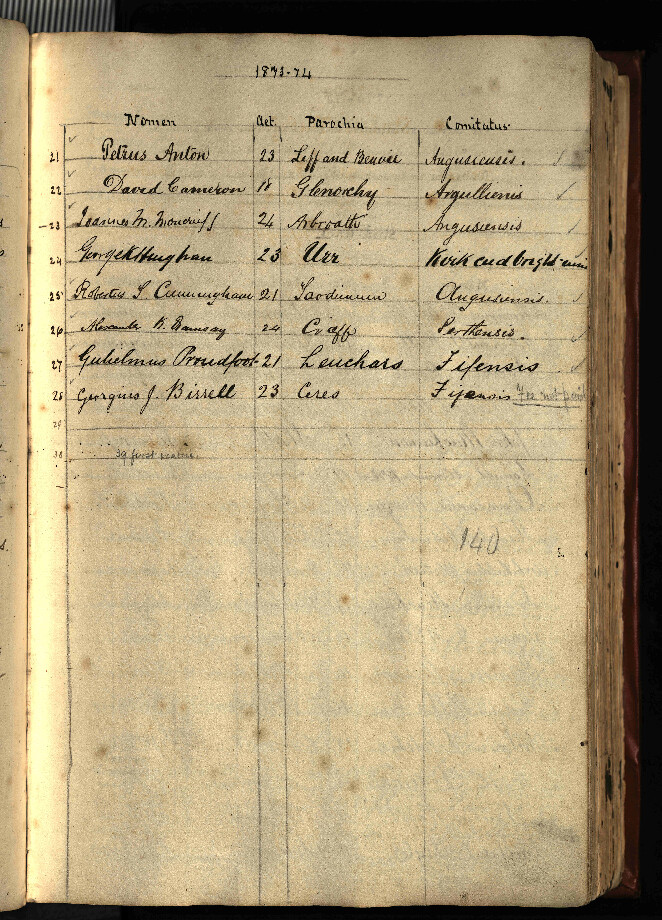 1873-74
Nomen Aet. Parochia Comitatus
21 Petrus Anton 23 Liff and Benvie Angusiensis.
22 David Cameron 18 Glenorchy Argullienis
23 Joannes M. Moncrieff 24 Arbroath Angusiensis
24 George Bingham 23 Urr Kirkcudbright
25 Robertus S. Cunningham 21 Angusiensis.
26 Alexander R. Ramsay 24 Crieff Perthensis.
27 Gulielmus Proudfoot 21 Leuchars Fifensis
28 Georgius J. Birrell 23 Ceres Fifensis Fee not paid
29
30 39 first
140